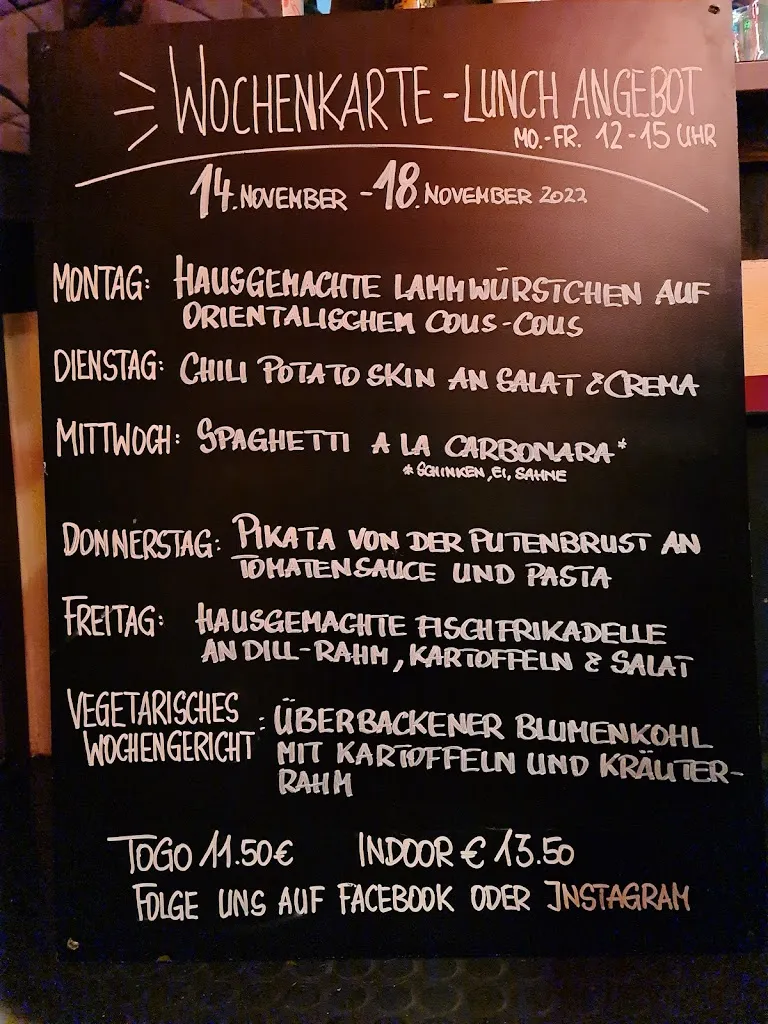 WOCHENKARTE - LUNCH ANGEBOT
MO.-FR. 12-15 UHR
14. NOVEMBER - 18. NOVEMBER 2022
MONTAG: HAUSGEMACHTE LAMMWÜRSTCHEN AUF
ORIENTALISCHEM COUS-COUS
DIENSTAG: CHILI POTATO SKIN AN SALAT & CREMA
MITTWOCH: SPAGHETTI A LA CARBONARA*
* SCHINKEN, EI, SAHNE
DONNERSTAG: PIKATA VON DER PUTENBRUST AN
TOMATENSAUCE UND PASTA
FREITAG: HAUSGEMACHTE FISCHFRIKADELLE
AN DILL-RAHM, KARTOFFELN & SALAT
VEGETARISCHES
WOCHENGERICHT: ÜBERBACKENER BLUMENKOHL
MIT KARTOFFELN UND KRÄUTER-
RAHM
TOGO 11.50€ INDOOR € 13.50
FOLGE UNS AUF FACEBOOK ODER INSTAGRAM